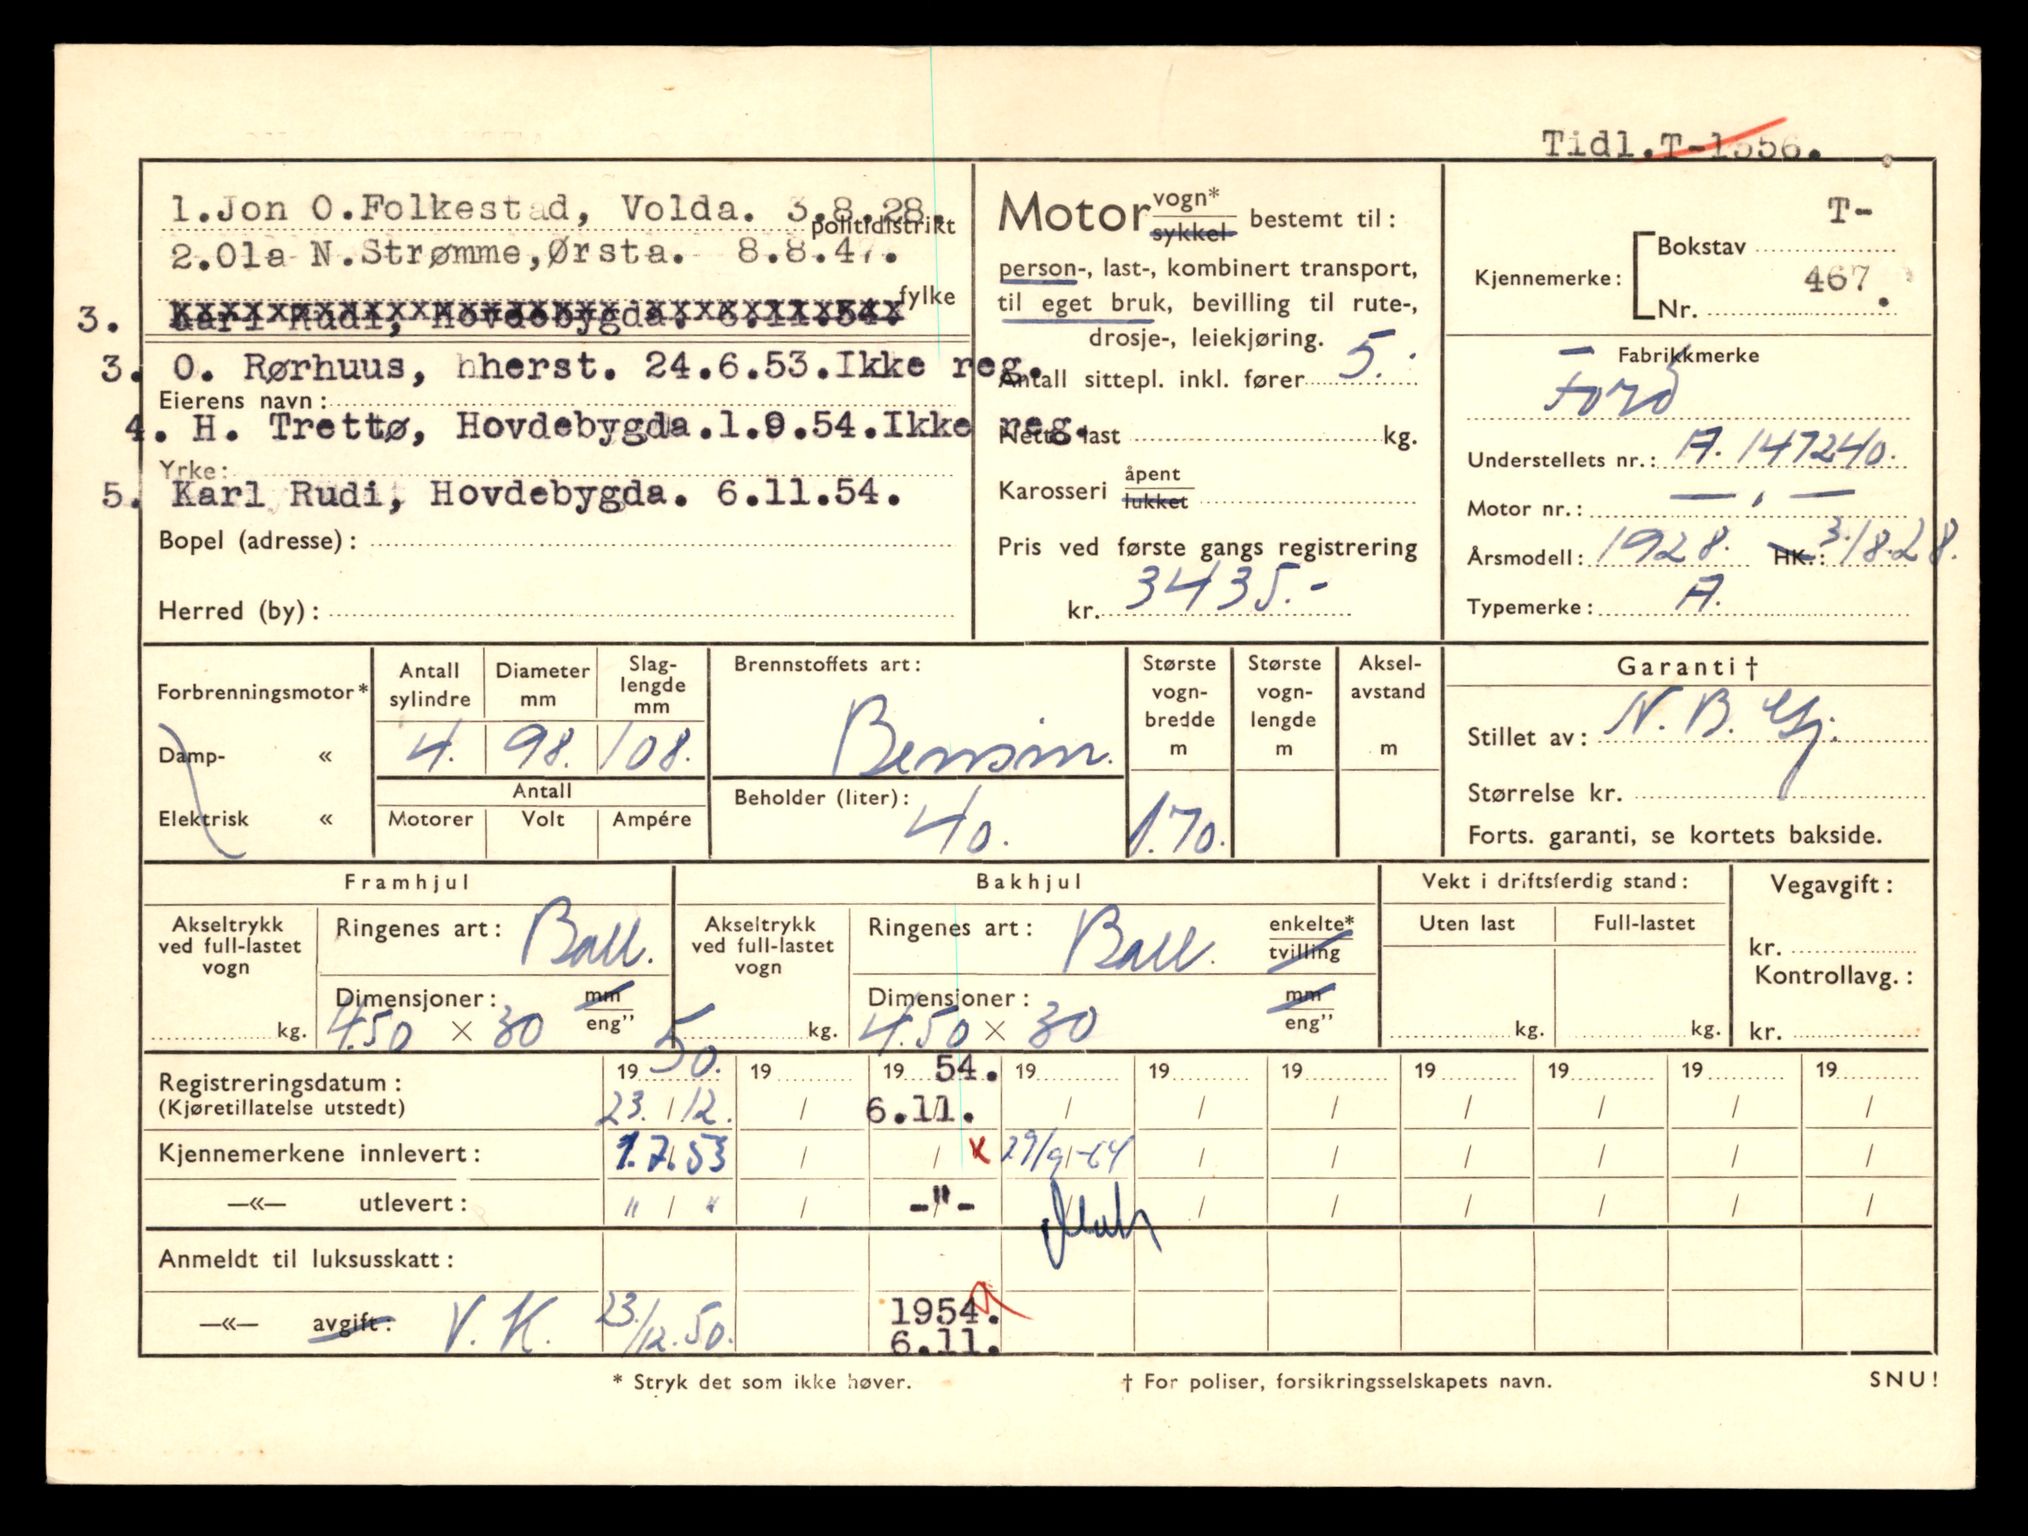 Tidl.T-1556.
1.Jon O.Folkestad, Volda. 3.8.28.
politidistrikt
2.Ola N.Strømme,Ørsta. 8.8.47.
fylke
3. Karl Rudi, Hovdebygda. 6.11.54.
3. O. Rørhuus, hherst. 24.6.53.Ikke reg.
Eierens navn:
4. H. Trettø, Hovdebygda.1.9.54.Ikke reg.
Yrke:
5. Karl Rudi, Hovdebygda. 6.11.54.
Bopel (adresse):
Herred (by):
Motor vogn* sykkel bestemt til:
person-, last-, kombinert transport,
til eget bruk, bevilling til rute-,
drosje-, leiekjøring.
Antall sittepl. inkl. fører 5.
Netto last kg.
Karosseri åpent lukket
Pris ved første gangs registrering
kr. 3435.-
T-
Kjennemerke: Bokstav
467.
Nr.
Fabrikkmerke
Ford
Understellets nr.: A. 147240.
Motor nr.: — , —
Årsmodell: 1928. HK.: 3./8.28.
Typemerke: A.
Forbrenningsmotor*
Damp- «
Elektrisk «
Antall sylindre 4.
Diameter mm 98.
Slag-lengde mm 108.
Antall
Motorer Volt Ampére
Brennstoffets art:
Bensin.
Beholder (liter):
40.
Største vogn-bredde m
1.70.
Største vogn-lengde m
Aksel-avstand m
Garanti †
Stillet av: N. B. Gj.
Størrelse kr.
Forts. garanti, se kortets bakside.
Framhjul
Akseltrykk ved full-lastet vogn
kg.
Ringenes art: Ball.
Dimensjoner: mm eng"
4.50 × 30
Bakhjul
Akseltrykk ved full-lastet vogn
kg.
Ringenes art: Ball. enkelte* tvilling
Dimensjoner: mm eng"
4.50 × 30
Vekt i driftsferdig stand:
Uten last Full-lastet
kg. kg.
Vegavgift:
kr.
Kontrollavg.:
kr.
Registreringsdatum: 19 50. 19 19 54. 19 19 19 19 19 19 19
(Kjøretillatelse utstedt) 23. / 12. / 6.11. / / / / / / /
Kjennemerkene innlevert: 1.7.53 / / x 29/9-64 / / / / / /
—«— utlevert: " / " / -"- / / / / / /
Anmeldt til luksusskatt:
—«— avgift: V. K. 23./12.50. 1954.
6.11.
* Stryk det som ikke høver.
† For poliser, forsikringsselskapets navn.
SNU!